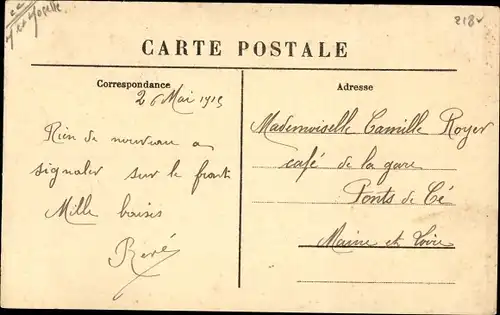 M et Moselle
218
CARTE POSTALE
Correspondance
Adresse
26 Mai 1915
Rien de nouveau a
signaler sur le front
Mille baisers
René
Mademoiselle Camille Royer
café de la gare
Ponts de Cé
Maine et Loire